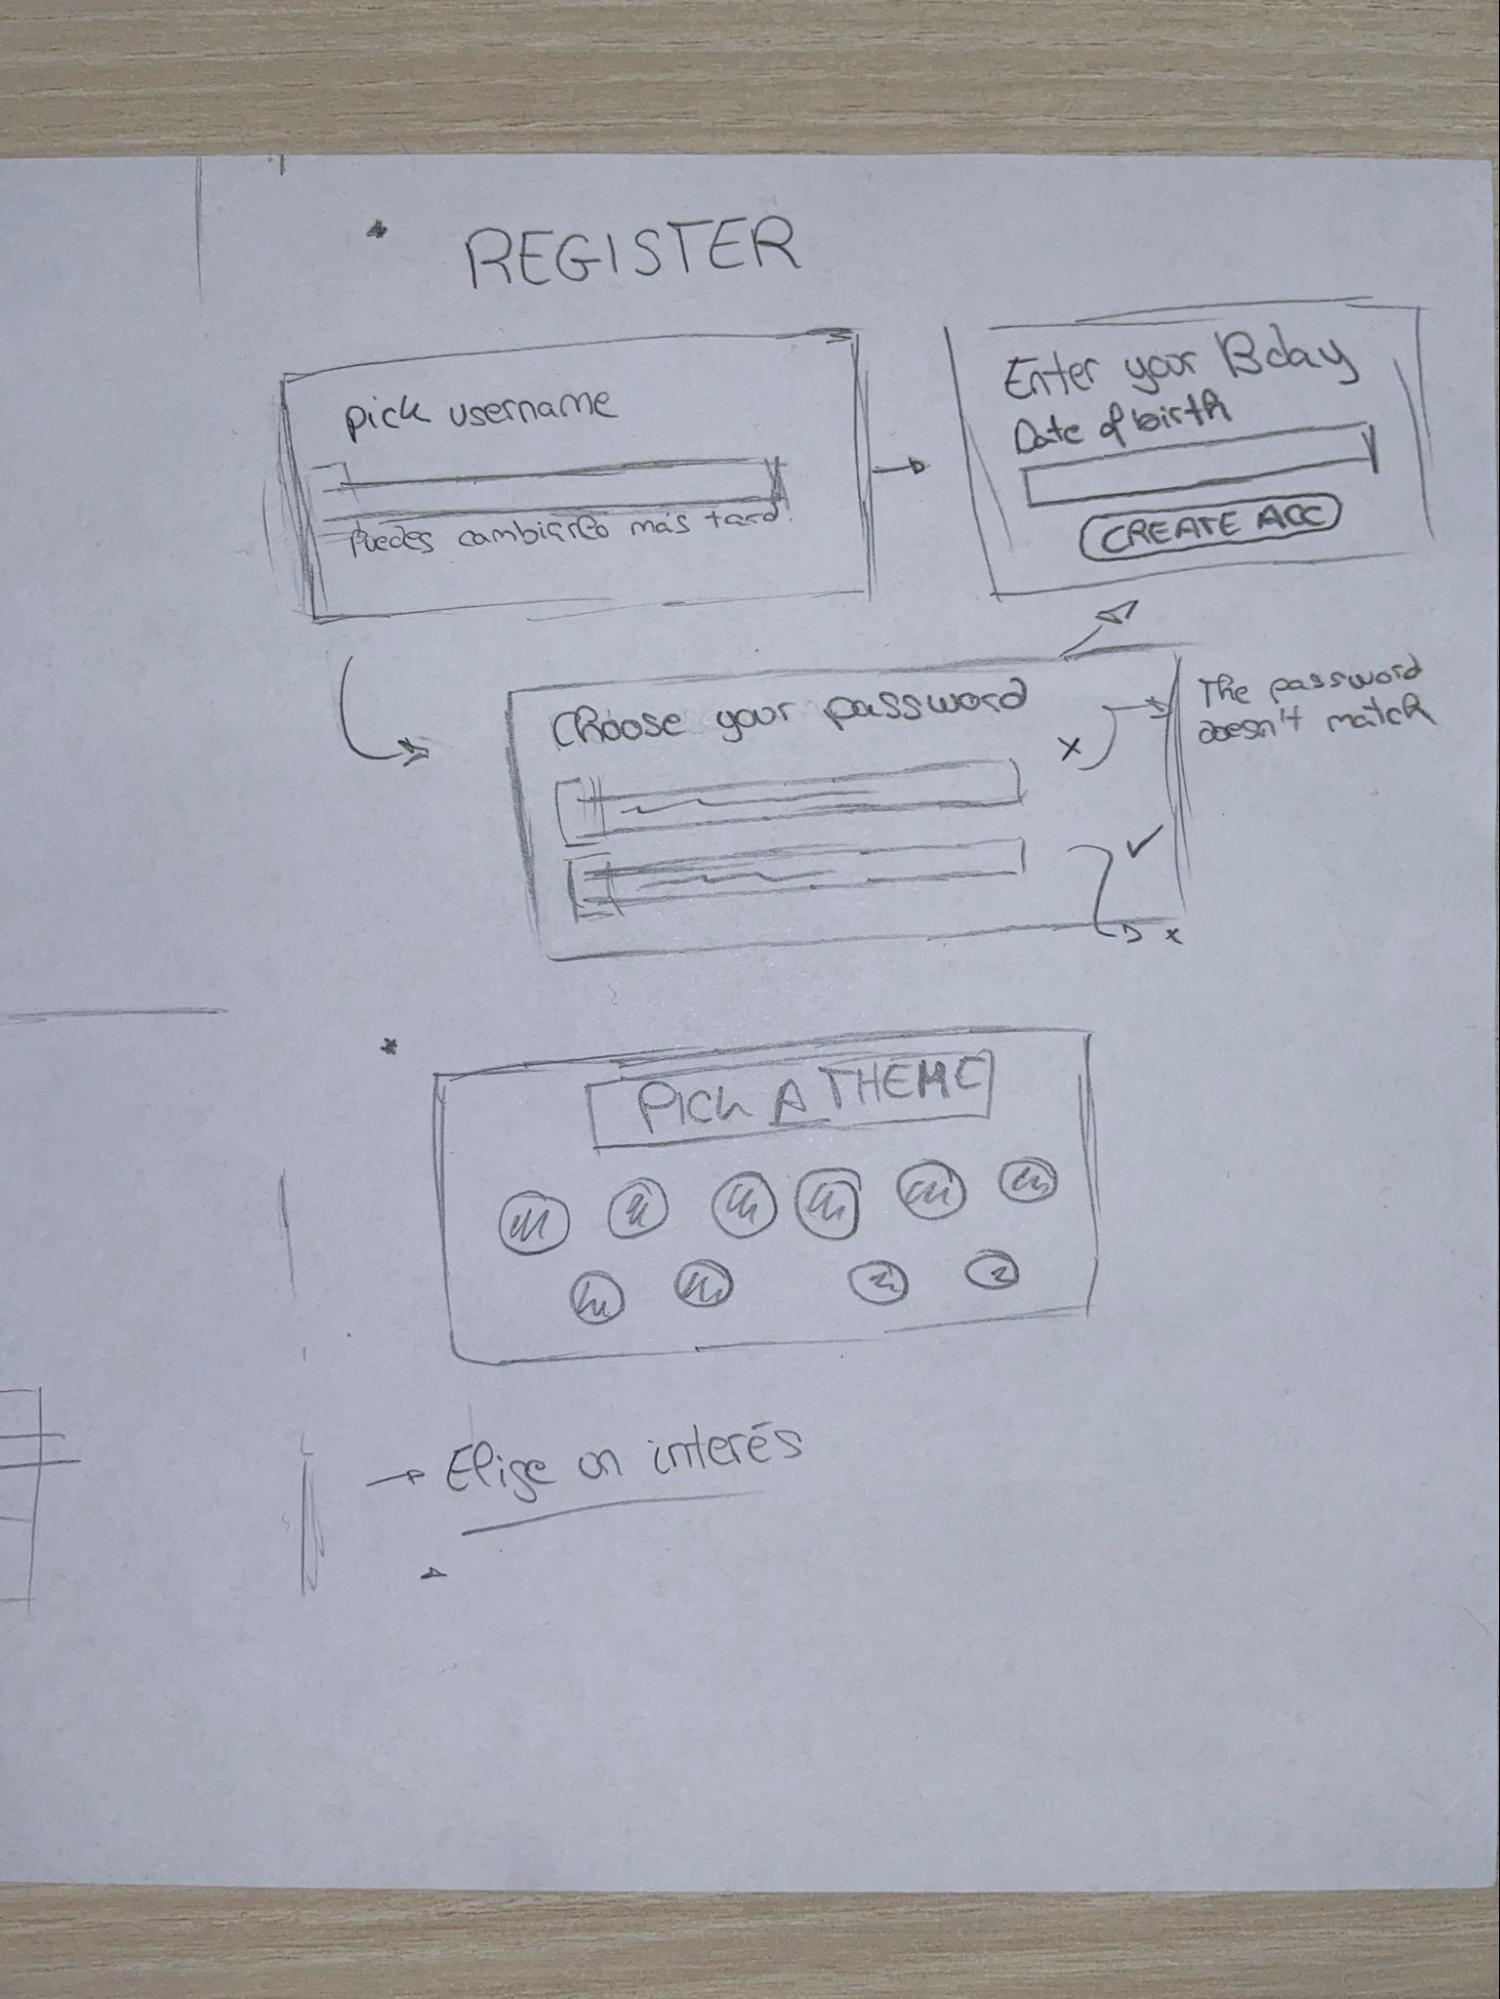 REGISTER
pick username
Puedes cambiarlo más tard.
Enter your Bday
Date of birth
CREATE ACC
Choose your password
The password
doesn't match
PICK A THEME
Elige un interés